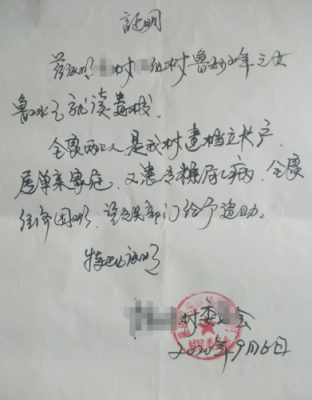 证明
兹证明 村 组村鲁 年之女
鲁 就读 校。
全家两口人是我村建档立卡户,
属单亲家庭,又患有糖尿病,全家
经济困难,请有关部门给予资助。
特此证明
村委会
2020年9月6日